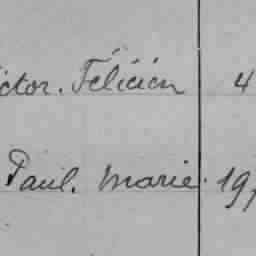 ctor. Félicien 4
Paul. Marie. 19,